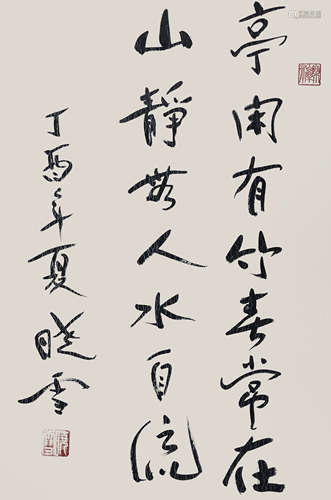 亭闲有竹春常在
山静无人水自流
丁酉年夏晓雪